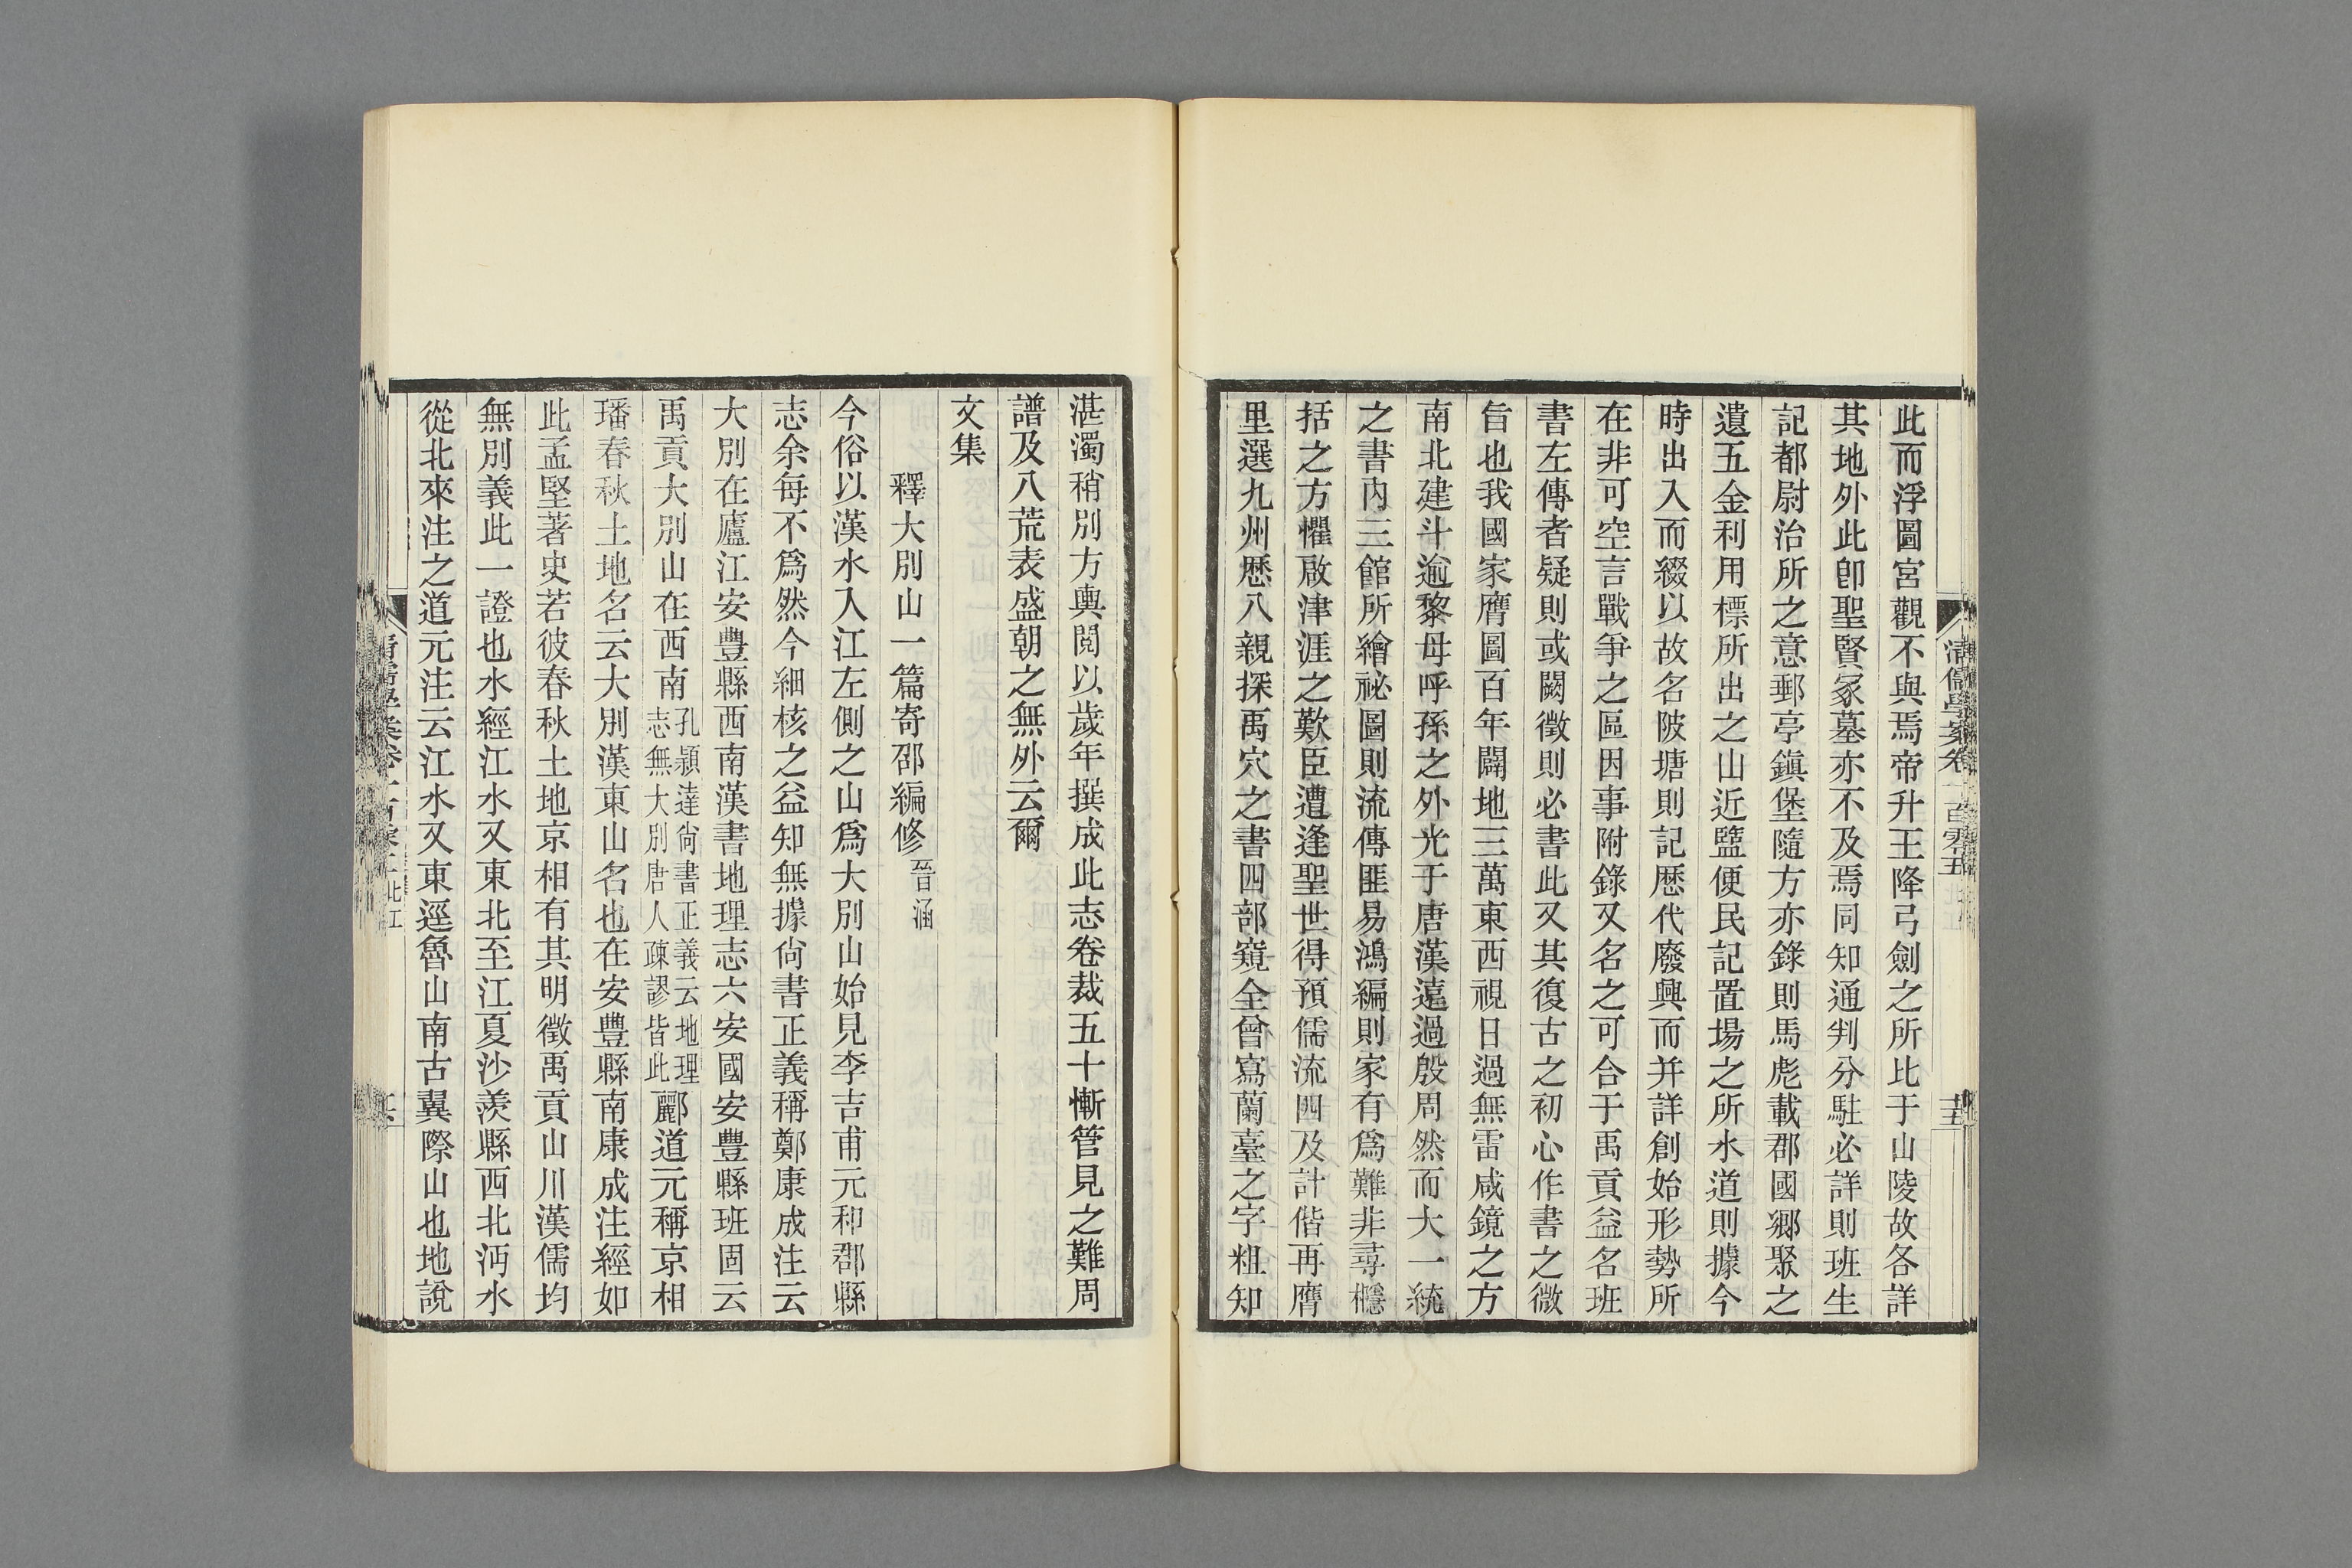 此而浮圖宮觀不與焉帝升王降弓劍之所比于山陵故各詳
其地外此卽聖賢冢墓亦不及焉同知通判分駐必詳則班生
記都尉治所之意郵亭鎮堡隨方亦錄則馬彪載郡國鄉聚之
遺五金利用標所出之山近鹽便民記置場之所水道則據今
時出入而綴以故名陂塘則記歷代廢興而并詳創始形勢所
在非可空言戰爭之區因事附錄又名之可合于禹貢益名班
書左傳者疑則或闕徵則必書此又其復古之初心作書之微
旨也我國家膺圖百年闢地三萬東西視日過無雷咸鏡之方
南北建斗逾黎母呼孫之外光于唐漢遠過殷周然而大一統
之書內三館所繪祕圖則流傳匪易鴻編則家有爲難非尋穩
括之方懼啟津涯之歎臣遭逢聖世得預儒流四及計偕再膺
里選九州歷八親探禹穴之書四部窺全曾寫蘭臺之字粗知
清儒學案卷一百零五
湛濁稍別方輿閱以歲年撰成此志卷裁五十慚管見之難周
譜及八荒表盛朝之無外云爾
文集
釋大別山一篇寄邵編修晉涵
今俗以漢水入江左側之山爲大別山始見李吉甫元和郡縣
志余每不爲然今細核之益知無據尙書正義稱鄭康成注云
大別在廬江安豐縣西南漢書地理志六安國安豐縣班固云
禹貢大別山在西南孔穎達尙書正義云地理志無大別唐人疎謬皆此酈道元稱京相
璠春秋土地名云大別漢東山名也在安豐縣南康成注經如
此孟堅著史若彼春秋土地京相有其明徵禹貢山川漢儒均
無別義此一證也水經江水又東北至江夏沙羨縣西北沔水
從北來注之道元注云江水又東逕魯山南古翼際山也地說